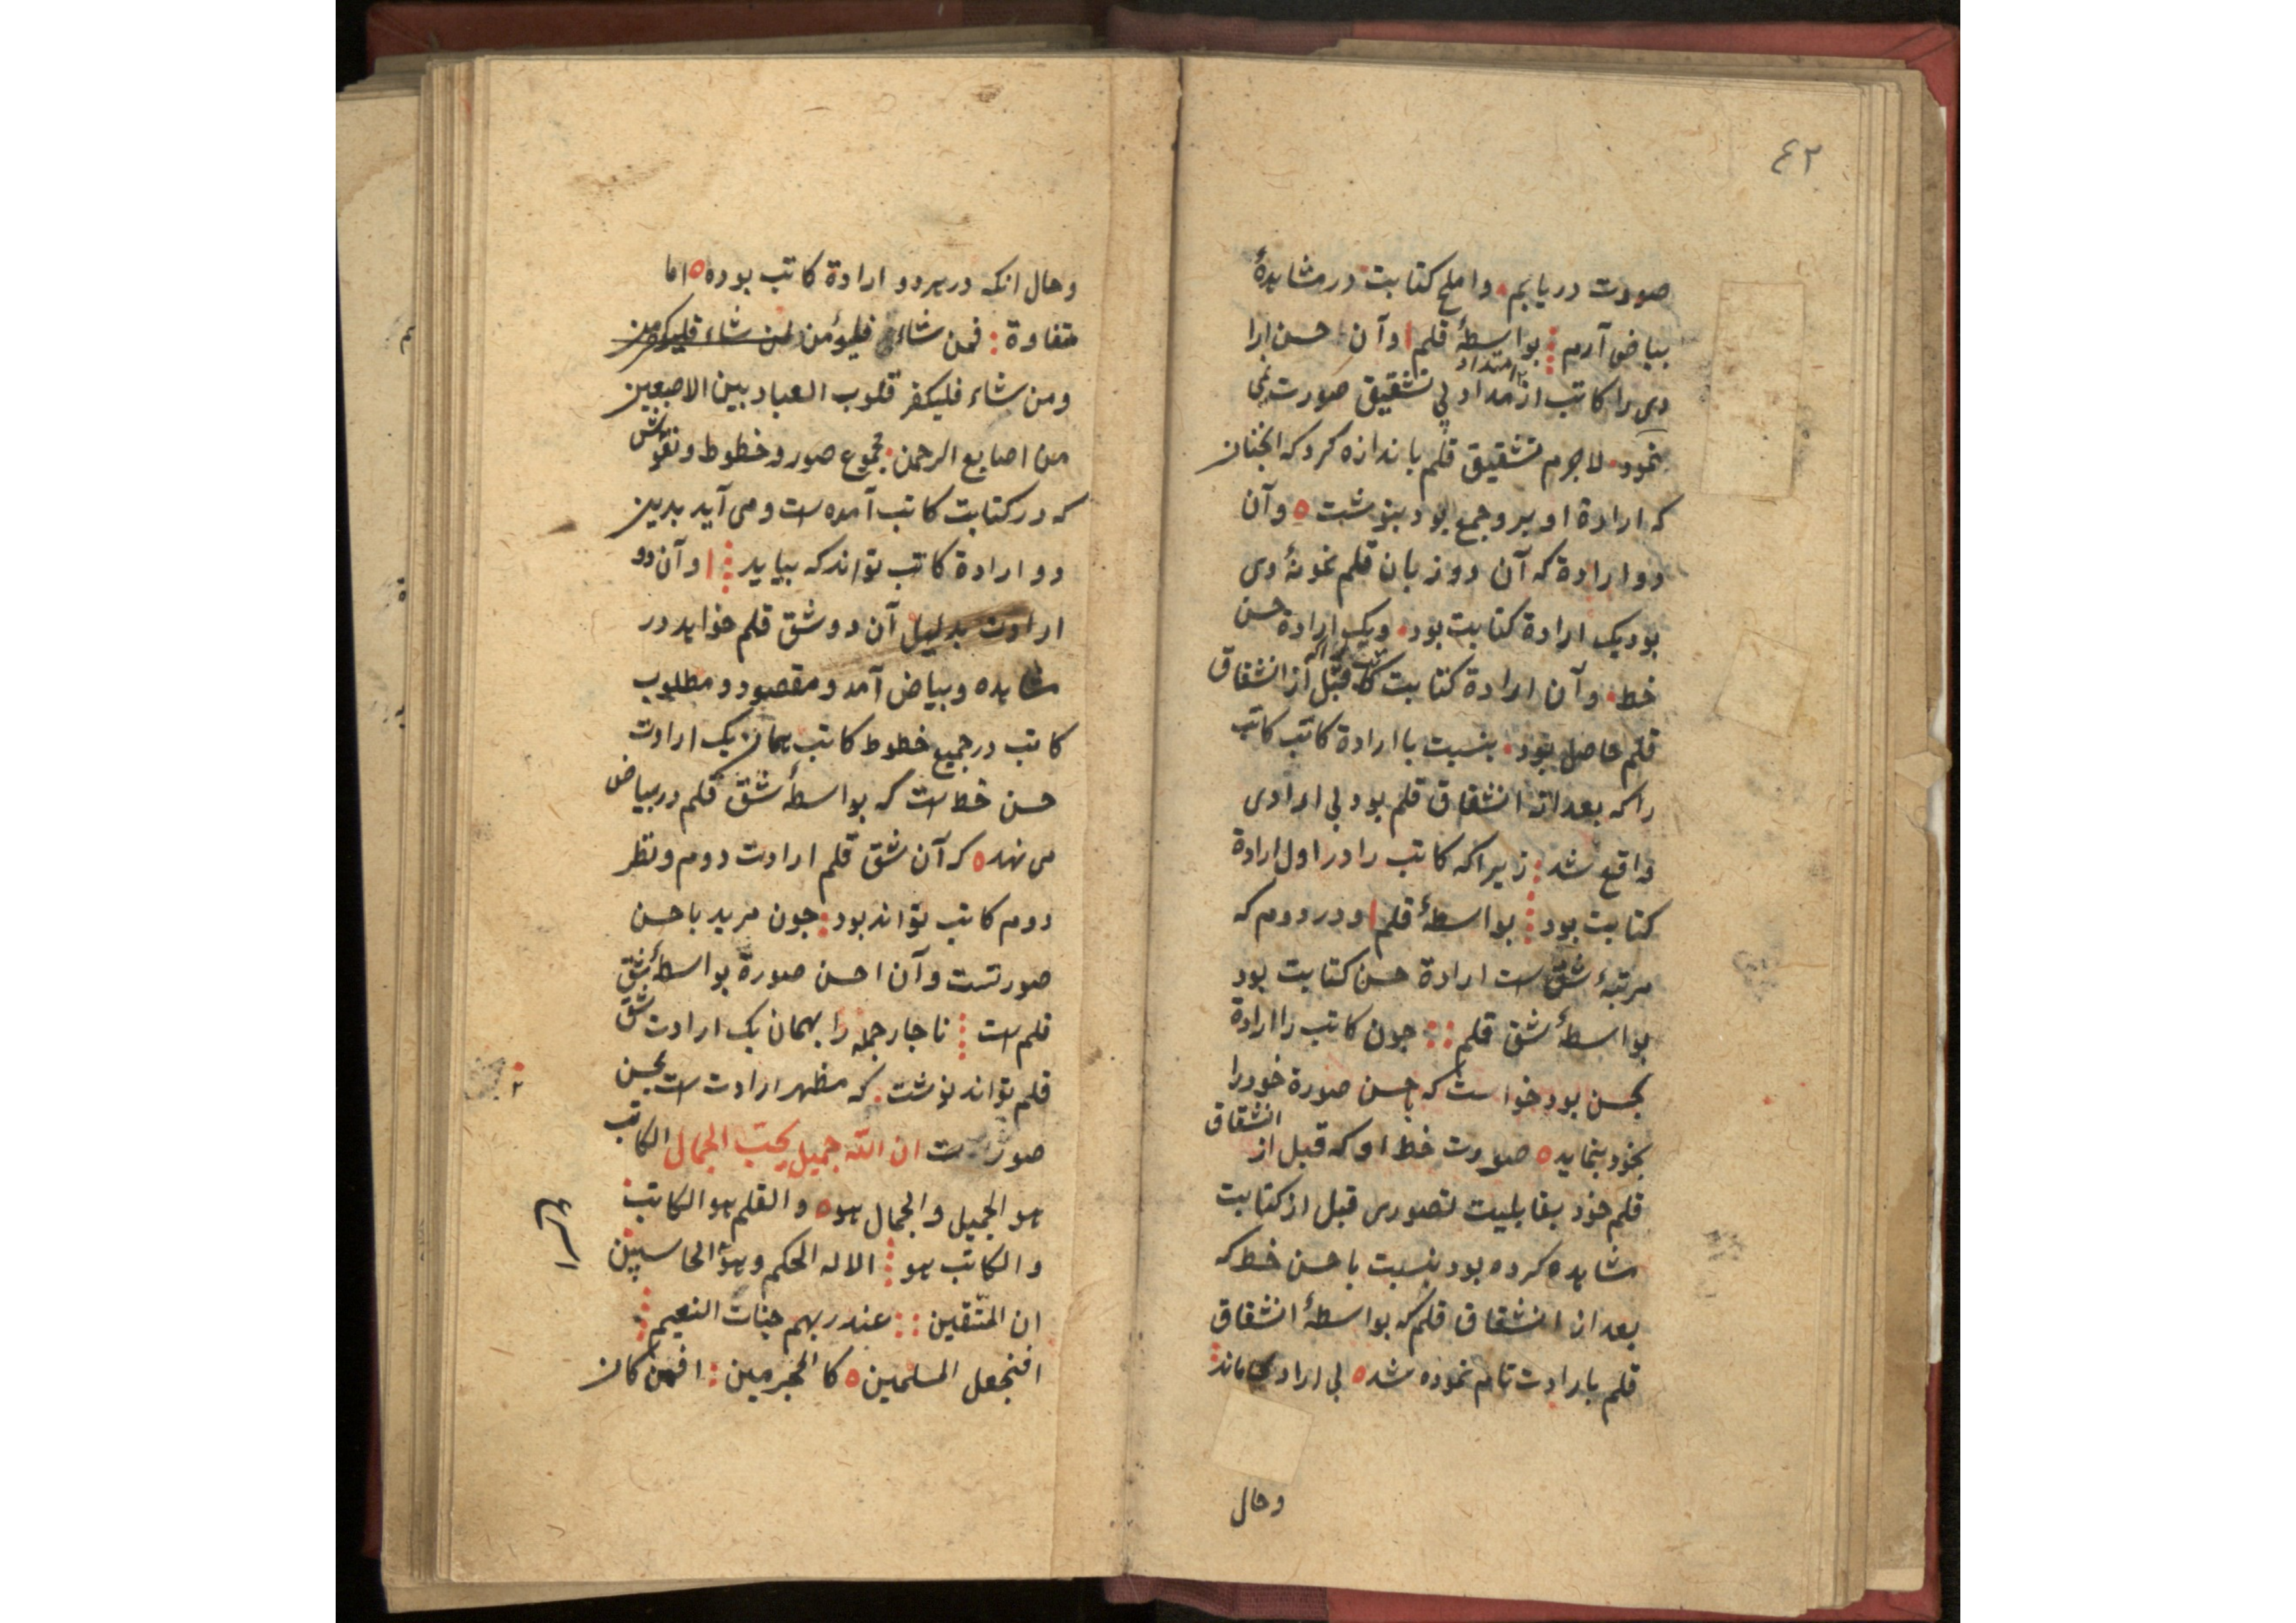 ٤٢
صورت دریابم واملح کتابت در مشاهدهٔ
بیاض آرم بواسطهٔ قلم وآن حسن ارا
دی را کاتب از مداد بی تشقیق صورت نمی
نمود لاجرم تشقیق قلم باندازه کرد که انچنان
که ارادة او برو جمع بود بنوشت ه وآن
دو ارادة که آن دو زبان قلم نمونهٔ دی
بود یک ارادة کتابت بود ویک ارادة حسن
خط وآن ارادة کتابت که قبل از انشقاق
قلم حاصل بود بنسبت با ارادة کاتب کاتب
را که بعد از انشقاق قلم بود بی ارادی
واقع شد زیرا که کاتب را در اول ارادة
کتابت بود بواسطهٔ قلم ودر دوم که
مرتبهٔ شق است ارادة حسن کتابت بود
بواسطهٔ شق قلم جون کاتب را ارادة
بحسن بود خواست که باحسن صورة خود را
بخود بنماید ه صورت خط او که قبل از انشقاق
قلم خود بقابلیت تصوری قبل از کتابت
مشاهده کرده بود بنسبت باحسن خط که
بعد از انشقاق قلم که بواسطهٔ انشقاق
قلم بارادت تام نموده شد ه بی ارادی ماند
وحال
وحال انکه در هر دو ارادة کاتب بوده ه اما
متفاوة فمن شاء فلیؤمن لمن شاء فلیکفر من
ومن شاء فلیکفر قلوب العباد بین الاصبعین
من اصابع الرحمن مجموع صور وخطوط ونقوش
که در کتابت کاتب آمده است ومی آید بدین
دو ارادة کاتب تواند که بیاید وآن دو
ارادت بدلیل آن دو شق قلم خواهد در
مشاهده وبیاض آمد ومقصود ومطلوب
کاتب در جمیع خطوط کاتب همان یک ارادت
حسن خط است که بواسطهٔ شق قلم در بیاض
می نهد ه که آن شق قلم ارادت دوم ونظر
دوم کاتب تواند بود جون مرید باحسن
صورتست وآن احسن صورة بواسطهٔ شق
قلم است ناجار جمله را بهمان یک ارادت شق
قلم تواند نوشت که مظهر ارادت است بحسن
۲
صورت است ان الله جمیل یحب الجمال الکاتب
هو الجمیل والجمال هو ه والقلم هو الکاتب
والکاتب هو الاله الحکم وهو الحاسبین
ان المتقین عند ربهم جنات النعیم
افنجعل المسلمین ه کالمجرمین افمن کان